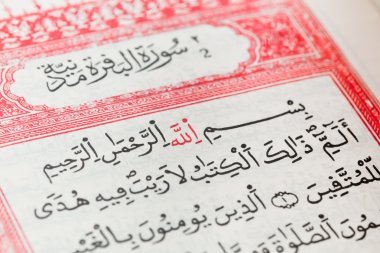 سُورَةُ الْبَقَرَةِ مَدَنِيَّةٌ 2
بِسْمِ اللّٰهِ الرَّحْمٰنِ الرَّحِيمِ
الٓمٓ ذٰلِكَ الْكِتٰبُ لَا رَيْبَ فِيهِ هُدًى
لِلْمُتَّقِينَ ١ الَّذِينَ يُؤْمِنُونَ بِالْغَيْبِ
يمُونَ الصَّلٰوةَ